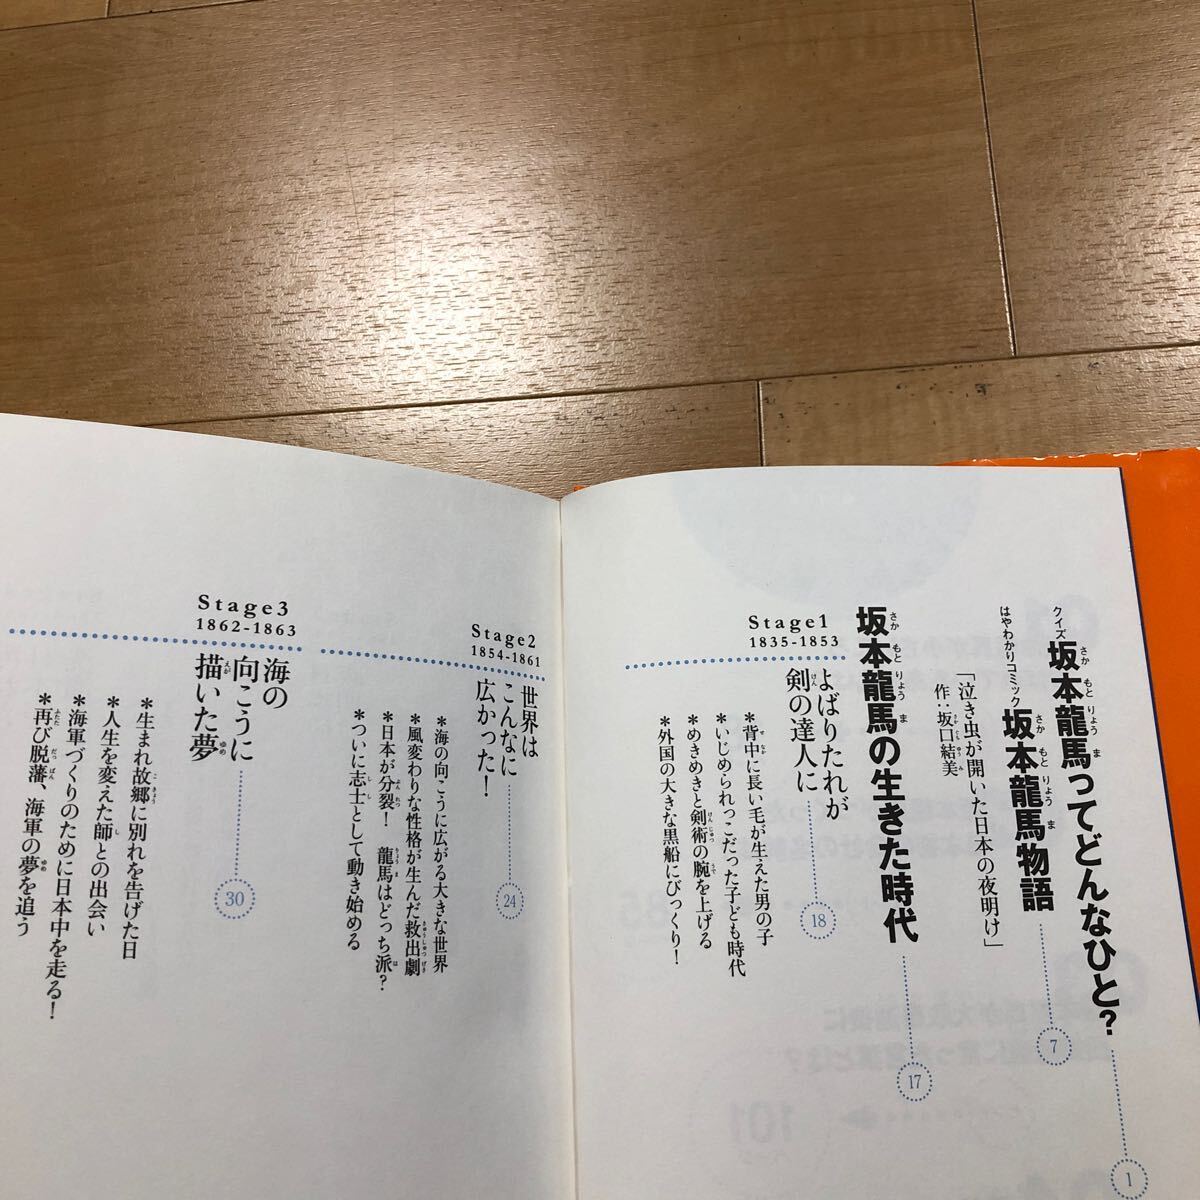 クイズ 坂本龍馬ってどんなひと？ 1
はやわかりコミック 坂本龍馬物語 7
「泣き虫が開いた日本の夜明け」
作：坂口結美
坂本龍馬の生きた時代 17
Stage1
1835-1853
よばりたれが
剣の達人に 18
＊背中に長い毛が生えた男の子
＊いじめられっこだった子ども時代
＊めきめきと剣術の腕を上げる
＊外国の大きな黒船にびっくり！
Stage2
1854-1861
世界は
こんなに
広かった！ 24
＊海の向こうに広がる大きな世界
＊風変わりな性格が生んだ救出劇
＊日本が分裂！ 龍馬はどっち派？
＊ついに志士として動き始める
Stage3
1862-1863
海の
向こうに
描いた夢 30
＊生まれ故郷に別れを告げた日
＊人生を変えた師との出会い
＊海軍づくりのために日本中を走る！
＊再び脱藩、海軍の夢を追う